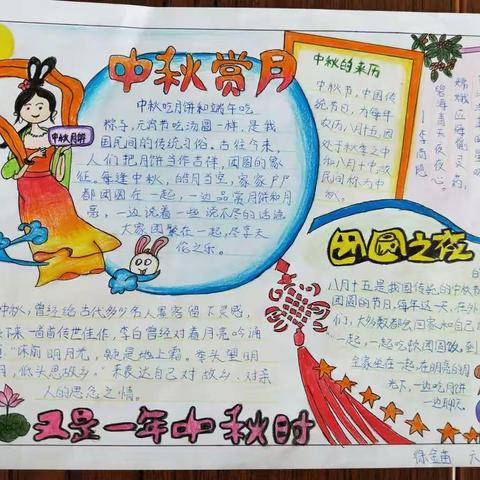 中秋赏月
中秋吃月饼和端午吃
粽子，元宵节吃汤圆一样，是我
国民间的传统习俗。古往今来，
人们把月饼当作吉祥，团圆的象
征。每逢中秋，皓月当空，家家户户
都团圆在一起，一边品赏月饼和月
亮，一边说着一些说不尽的话语
大家团聚在一起，尽享天
伦之乐。
中秋月饼
中秋的来历
中秋节，中国传
统节日，为每年
农历八月十五，因
处于秋季之中
和八月十中，故
民间称为中
秋。
嫦娥应悔偷灵药，
碧海青天夜夜心。
—李商隐
团圆之夜
八月十五是我国传统的中秋节
团圆的节日，每年这一天，在外
们，大多数都吃回家和自己
一起，一起吃顿团圆饭，到
全家坐在一起，在明亮的月
光下，一边吃月饼
一边聊天。
中秋，曾经给古代多少名人墨客留下灵感，
下来一首首传世佳作，李白曾经对着月亮吟诵
"床前明月光，疑是地上霜。举头望明
月，低头思故乡。"来表达自己对故乡、对亲
人的思念之情。
又是一年中秋时